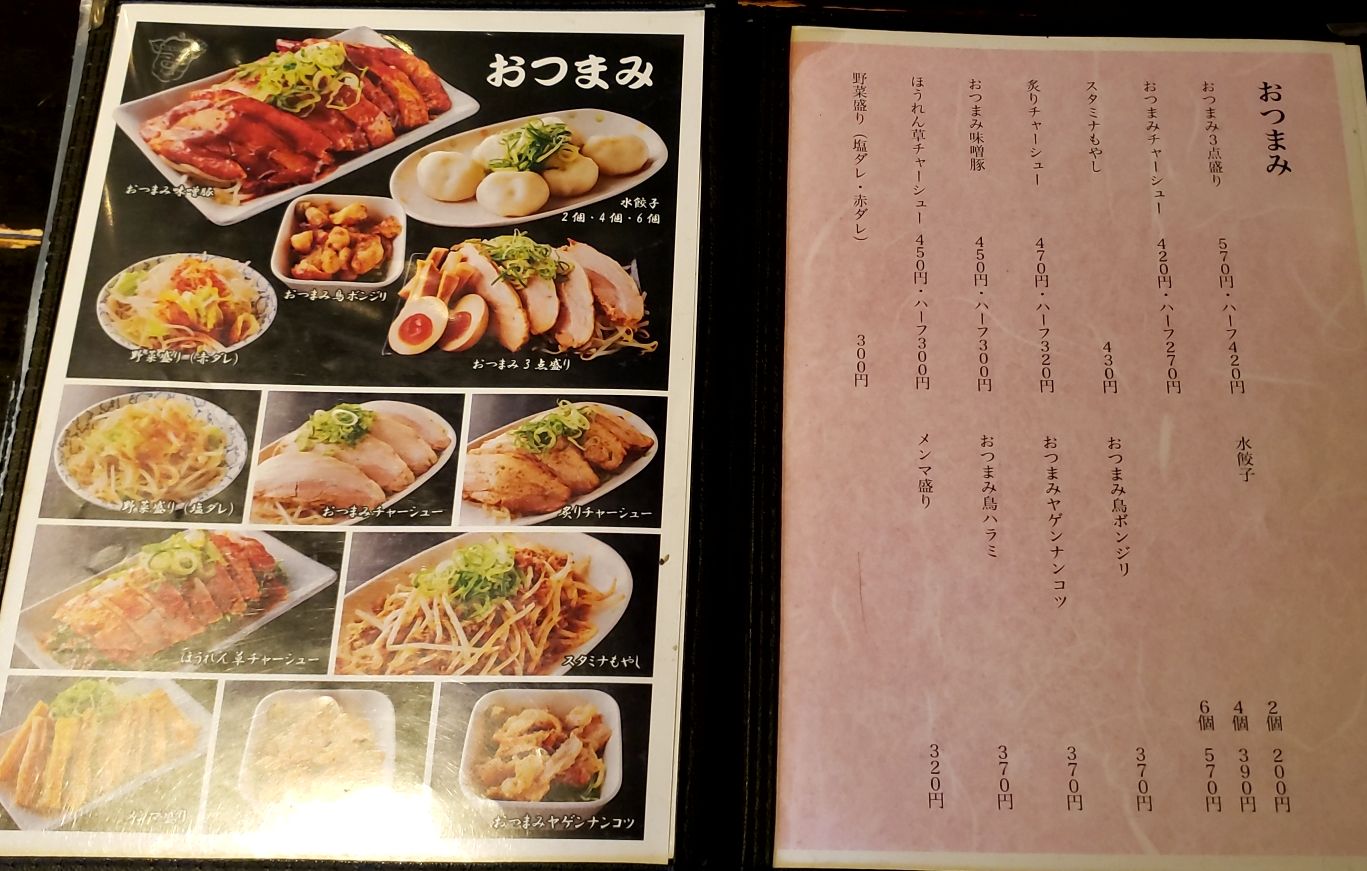 おつまみ
おつまみ味噌豚
水餃子
2個・4個・6個
おつまみ鳥ボンジリ
野菜盛り(赤ダレ)
おつまみ3点盛り
野菜盛り(塩ダレ)
おつまみチャーシュー
炙りチャーシュー
ほうれん草チャーシュー
スタミナもやし
メンマ盛り
おつまみヤゲンナンコツ
おつまみ
おつまみ3点盛り 570円・ハーフ420円
おつまみチャーシュー 420円・ハーフ270円
スタミナもやし 430円
炙りチャーシュー 470円・ハーフ320円
おつまみ味噌豚 450円・ハーフ300円
ほうれん草チャーシュー 450円・ハーフ300円
野菜盛り(塩ダレ・赤ダレ) 300円
水餃子 2個 200円
4個 390円
6個 570円
おつまみ鳥ボンジリ 370円
おつまみヤゲンナンコツ 370円
おつまみ鳥ハラミ 370円
メンマ盛り 320円